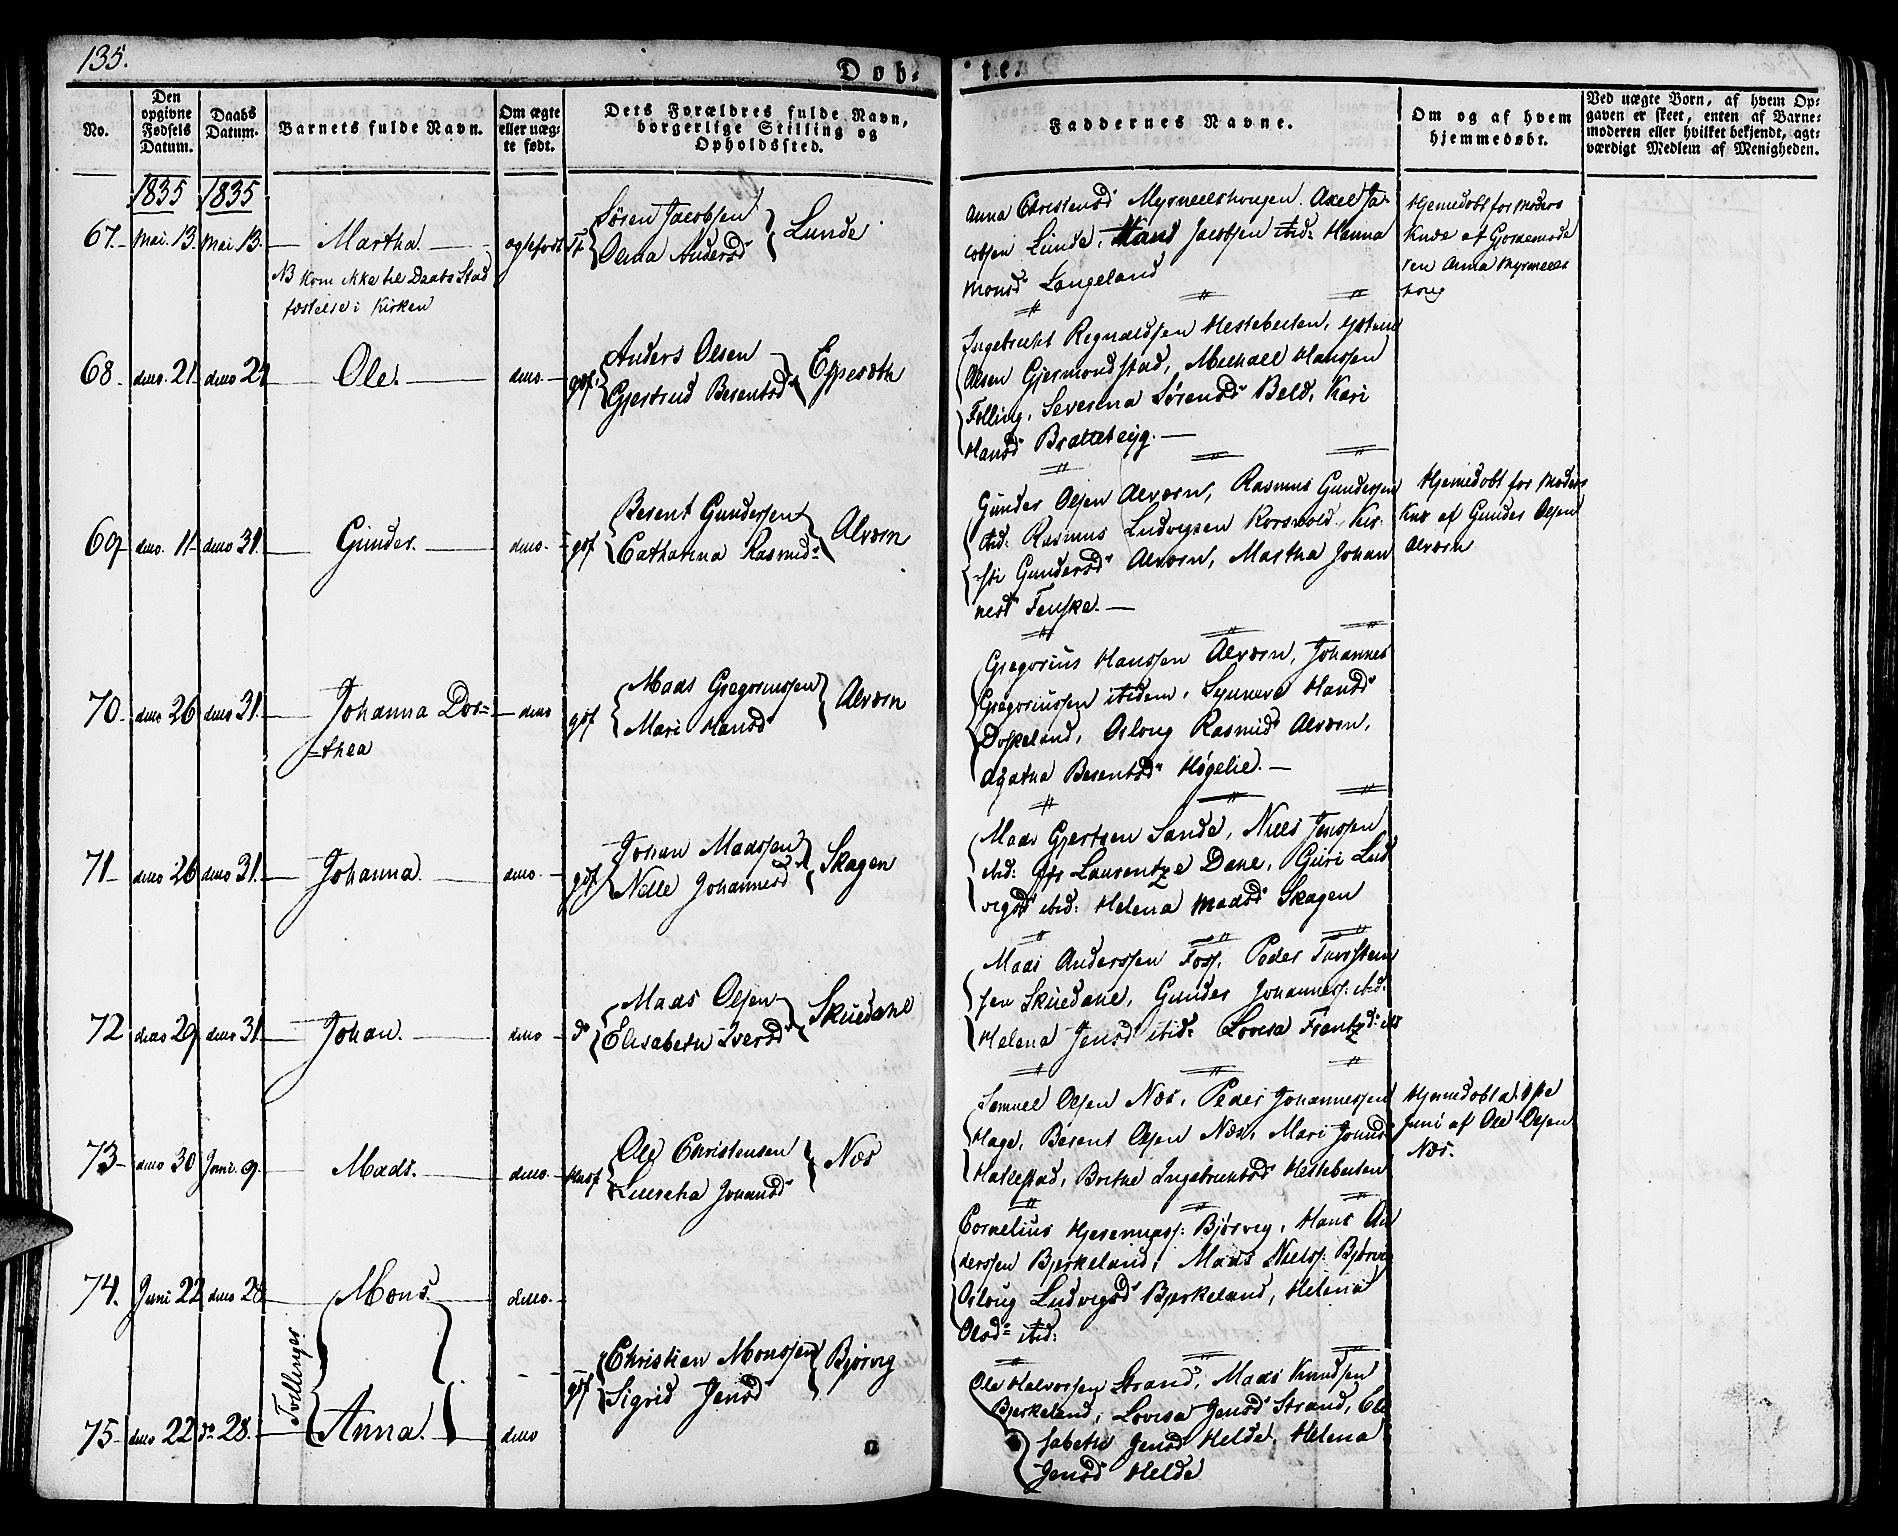 135.
Døb- te.
No.
Den opgivne Fødsels Datum.
Daabs Datum.
Barnets fulde Navn.
Om ægte eller uægte født.
Dets Forældres fulde Navn, borgerlige Stilling og Opholdssted.
Faddernes Navne.
Om og af hvem hjemmedøbt.
Ved uægte Børn, af hvem Opgaven er skeet, enten af Barnemoderen eller hvilket bekjendt, agtværdigt Medlem af Menigheden.
1835 1835
67. Mai. 13. Mai 13. Martha. ægtefødt
NB kom ikke til Daabs Stad
fæstelse i Kirken
Søren Jacobsen
Olina Andersd Lunde
Anna Christensd Myrmeelhougen. Axel Ja-
cobsen Lunde, Hans Jacobsen ibid: Hanna
Monsd Langeland
Hjemedøbt for Moders
Knæ af Gordemode
ren Anna Myrmeels
houg
68. dmo. 21. dmo 24 Ole. dmo. gdf.
Anders Olsen
Gjertrud Berentsd Espesæth
Ingebricht Regnaldssen Hestebeiten,
Olsen Gjermondstad, Michael Hanssen
Folling, Severina Sørensd Beld, Kari
Hansd Bratteteig.
69. dmo. 11. dmo 31. Gunder. dmo. gdf
Berent Gunderssen
Catharina Rasmusd Alværn
Gunder Olsen Alværn, Rasmus Gunderssen
ibid: Rasmus Ludvigsen Korsvold, Kir-
sti Gundersd Alværn, Martha Johan
nesd Fenske.
Hjemedøbt for Moders
Knæ af Gunder Olsen
Alværn
70. dmo 26 dmo 31. Johanna Dor-
thea dmo gdf
Mads Gregoriussen
Mari Hansd Alværn
Gregorius Hanssen Alværn, Johannes
Gregoriussen ibidem, Synneve Hansd
Doskeland, Osloug Rasmusd Alværn,
Agatha Berentsd Høgelie.
71. dmo 26 dmo 31. Johanna. dmo. gdf
Johan Madssen
Nille Johannesd Skagen
Mads Gjertsen Sande, Niels Jenssen
ibid: Laurentze Dane, Guri Lud
vigsd ibid: Helena Madsd Skagen
72 dmo 29 dmo 31. Johan. dmo do
Mads Olsen
Elisabeth Iversd Skuedahl
Mads Anderssen Foss, Peder
sen Skuedahl, Gunder Johanness: ibid:
Helena Jensd ibid: Lovisa Frantzd: ibd
73. dmo 30 Juni. 9. Mads. dmo. Husf
Ole Christensen
Lucretia Johansd Næs
Samuel Olsen Næs, Peder Johannessen
Hage, Berent Olsen Næs, Mari
Hatlestad, Brithe Ingebrichtsd Hestebeiten
Hjemedøbt d: 1ste
Juni af Ole Olsen
Næs.
74. Juni 22 dmo 28. Mons. dmo.
Cornelius Bjørvig, Hans An
derssen Bjerkeland, Mads Nielss: Bjørvig
Osloug Ludvigsd Bjerkeland, Helena
Olsd: ibid:
Tvillinger
gdf
Christian Monssen
Sigrid Jensd Bjørvig
75. dmo 22 do 28. Anna. dmo
Ole Halvorsen Strand, Mads Knudsen
Bjerkeland, Lovisa Jensd Strand, Eli
sabeth Jensd Helde, Helena
Jensd Helde